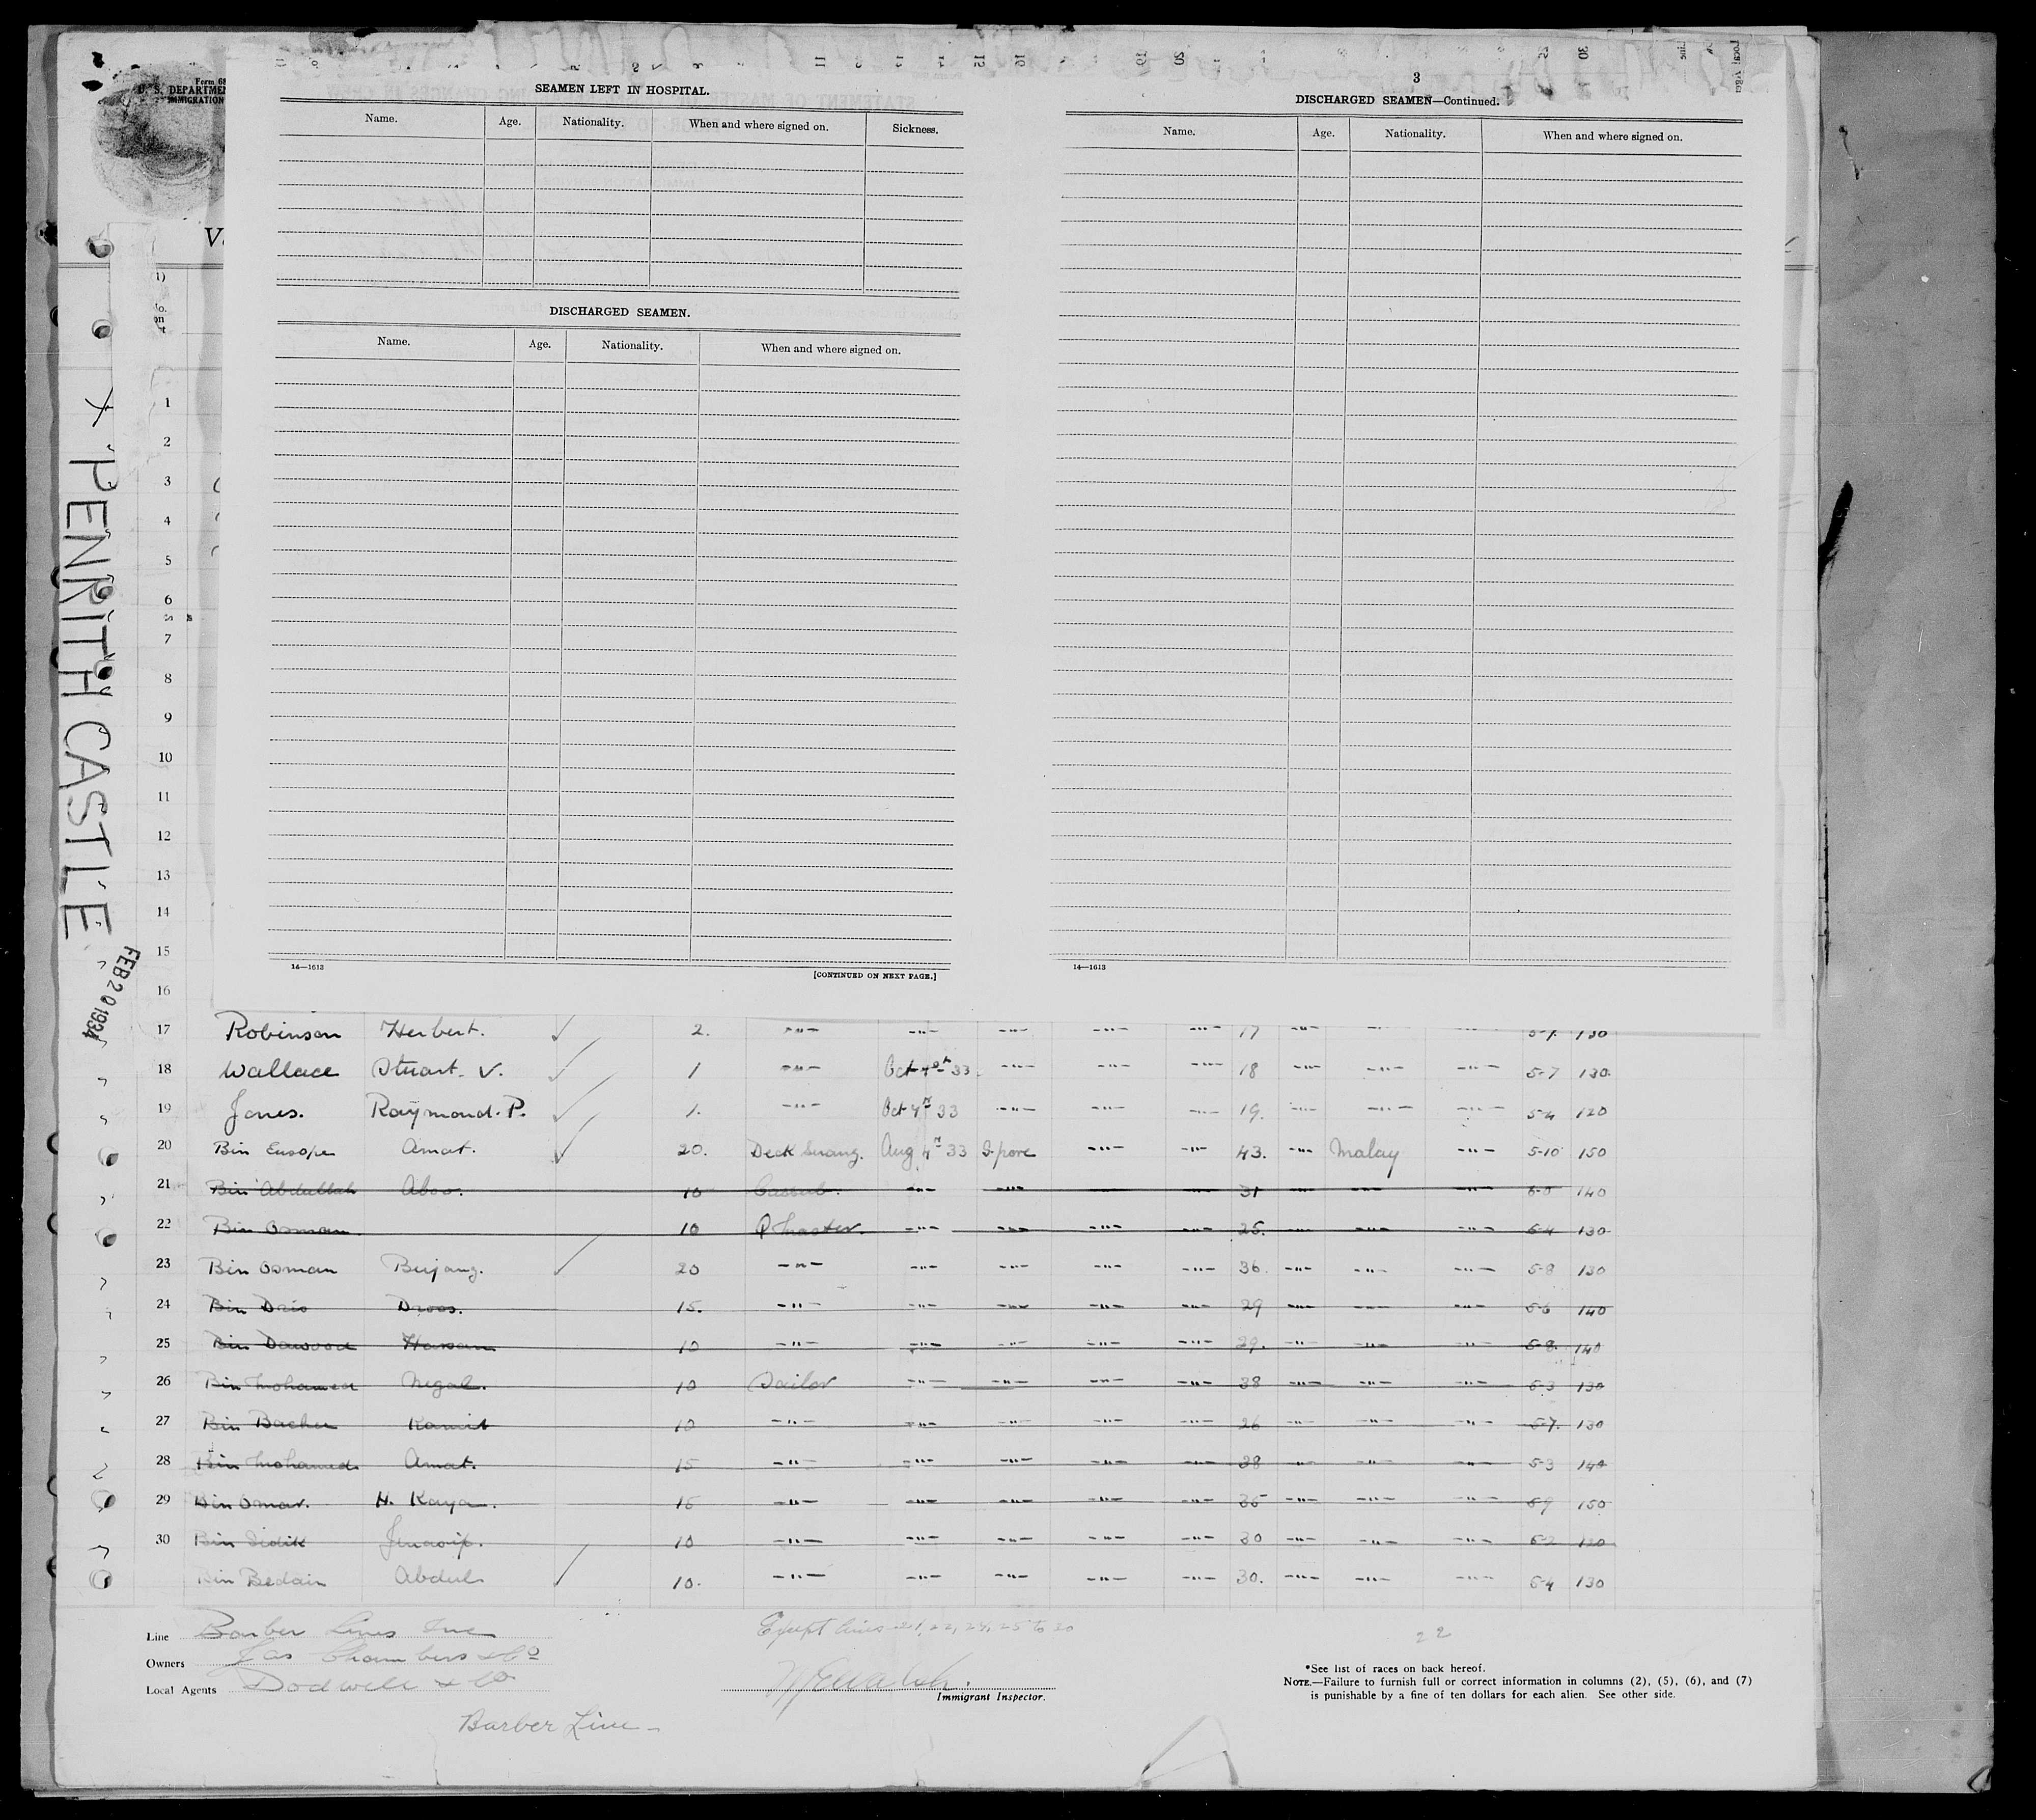 Form 68
U. S. DEPARTME
IMMIGRATION
X PENRITH CASTLE
FEB 20 1934
SEAMEN LEFT IN HOSPITAL.
Name. Age. Nationality. When and where signed on. Sickness.
DISCHARGED SEAMEN.
Name. Age. Nationality. When and where signed on.
14—1613 [CONTINUED ON NEXT PAGE.]
3
DISCHARGED SEAMEN—Continued.
Name. Age. Nationality. When and where signed on.
14—1613
1
2
3
4
5
6
7
8
9
10
11
12
13
14
15
16
17 Robinson Herbert. ✓ 2. -"- -"- -"- -"- -"- 17 -"- 130
18 Wallace Stuart. V. ✓ 1 -"- Oct 4th 33 -"- -"- -"- 18 -"- -"- -"- 5-7 130
19 Jones. Raymond. P. ✓ 1. -"- Oct 4th 33 -"- -"- -"- 19. -"- -"- -"- 5-4 120
20 Bin Eusope Amat. ✓ 20. Deck Serang. Aug 4th 33 S'pore -"- -"- 43. -"- Malay -"- 5-10 150
21 Bin Abdullah Aboo. 10 Cassab. -"- -"- -"- -"- 31 -"- -"- -"- 140
22 Bin Osman 10 Q Master. -"- -"- -"- -"- 25. -"- -"- -"- 5-4 130
23 Bin Osman Bujang. ✓ 20 -"- -"- -"- -"- -"- 36. -"- -"- -"- 5-8 130
24 Bin Dris 15. -"- -"- -"- -"- -"- 29 -"- -"- -"- 5-6 140
25 Bin Dawood Hassan 10 -"- -"- -"- -"- -"- 29. -"- -"- -"- 5-8. 140
26 Bin Mohamed 10 Sailor -"- -"- -"- -"- 38 -"- -"- -"- 5-3 130
27 Bin Bacher Kamit 10 -"- -"- -"- -"- -"- 26 -"- -"- -"- 5-7. 130
28 Bin Mohamed Amat. 15 -"- -"- -"- -"- -"- 38 -"- -"- -"- 5-3 140
29 Bin Omar. H. Kaya. 15 -"- -"- -"- -"- -"- 35 -"- -"- -"- 5-9 150
30 Bin Sidik 10 -"- -"- -"- -"- -"- 30 -"- -"- -"- 5-2 120
Bin Bedain Abdul ✓ 10. -"- -"- -"- -"- -"- 30. -"- -"- -"- 5-4 130
Line Barber Lines Inc
Owners Jas Chambers & Co
Local Agents Dodwell & Co
Barber Line -
Except lines 21, 22, 24, 25 to 30
Immigrant Inspector.
22
*See list of races on back hereof.
NOTE.—Failure to furnish full or correct information in columns (2), (5), (6), and (7)
is punishable by a fine of ten dollars for each alien. See other side.